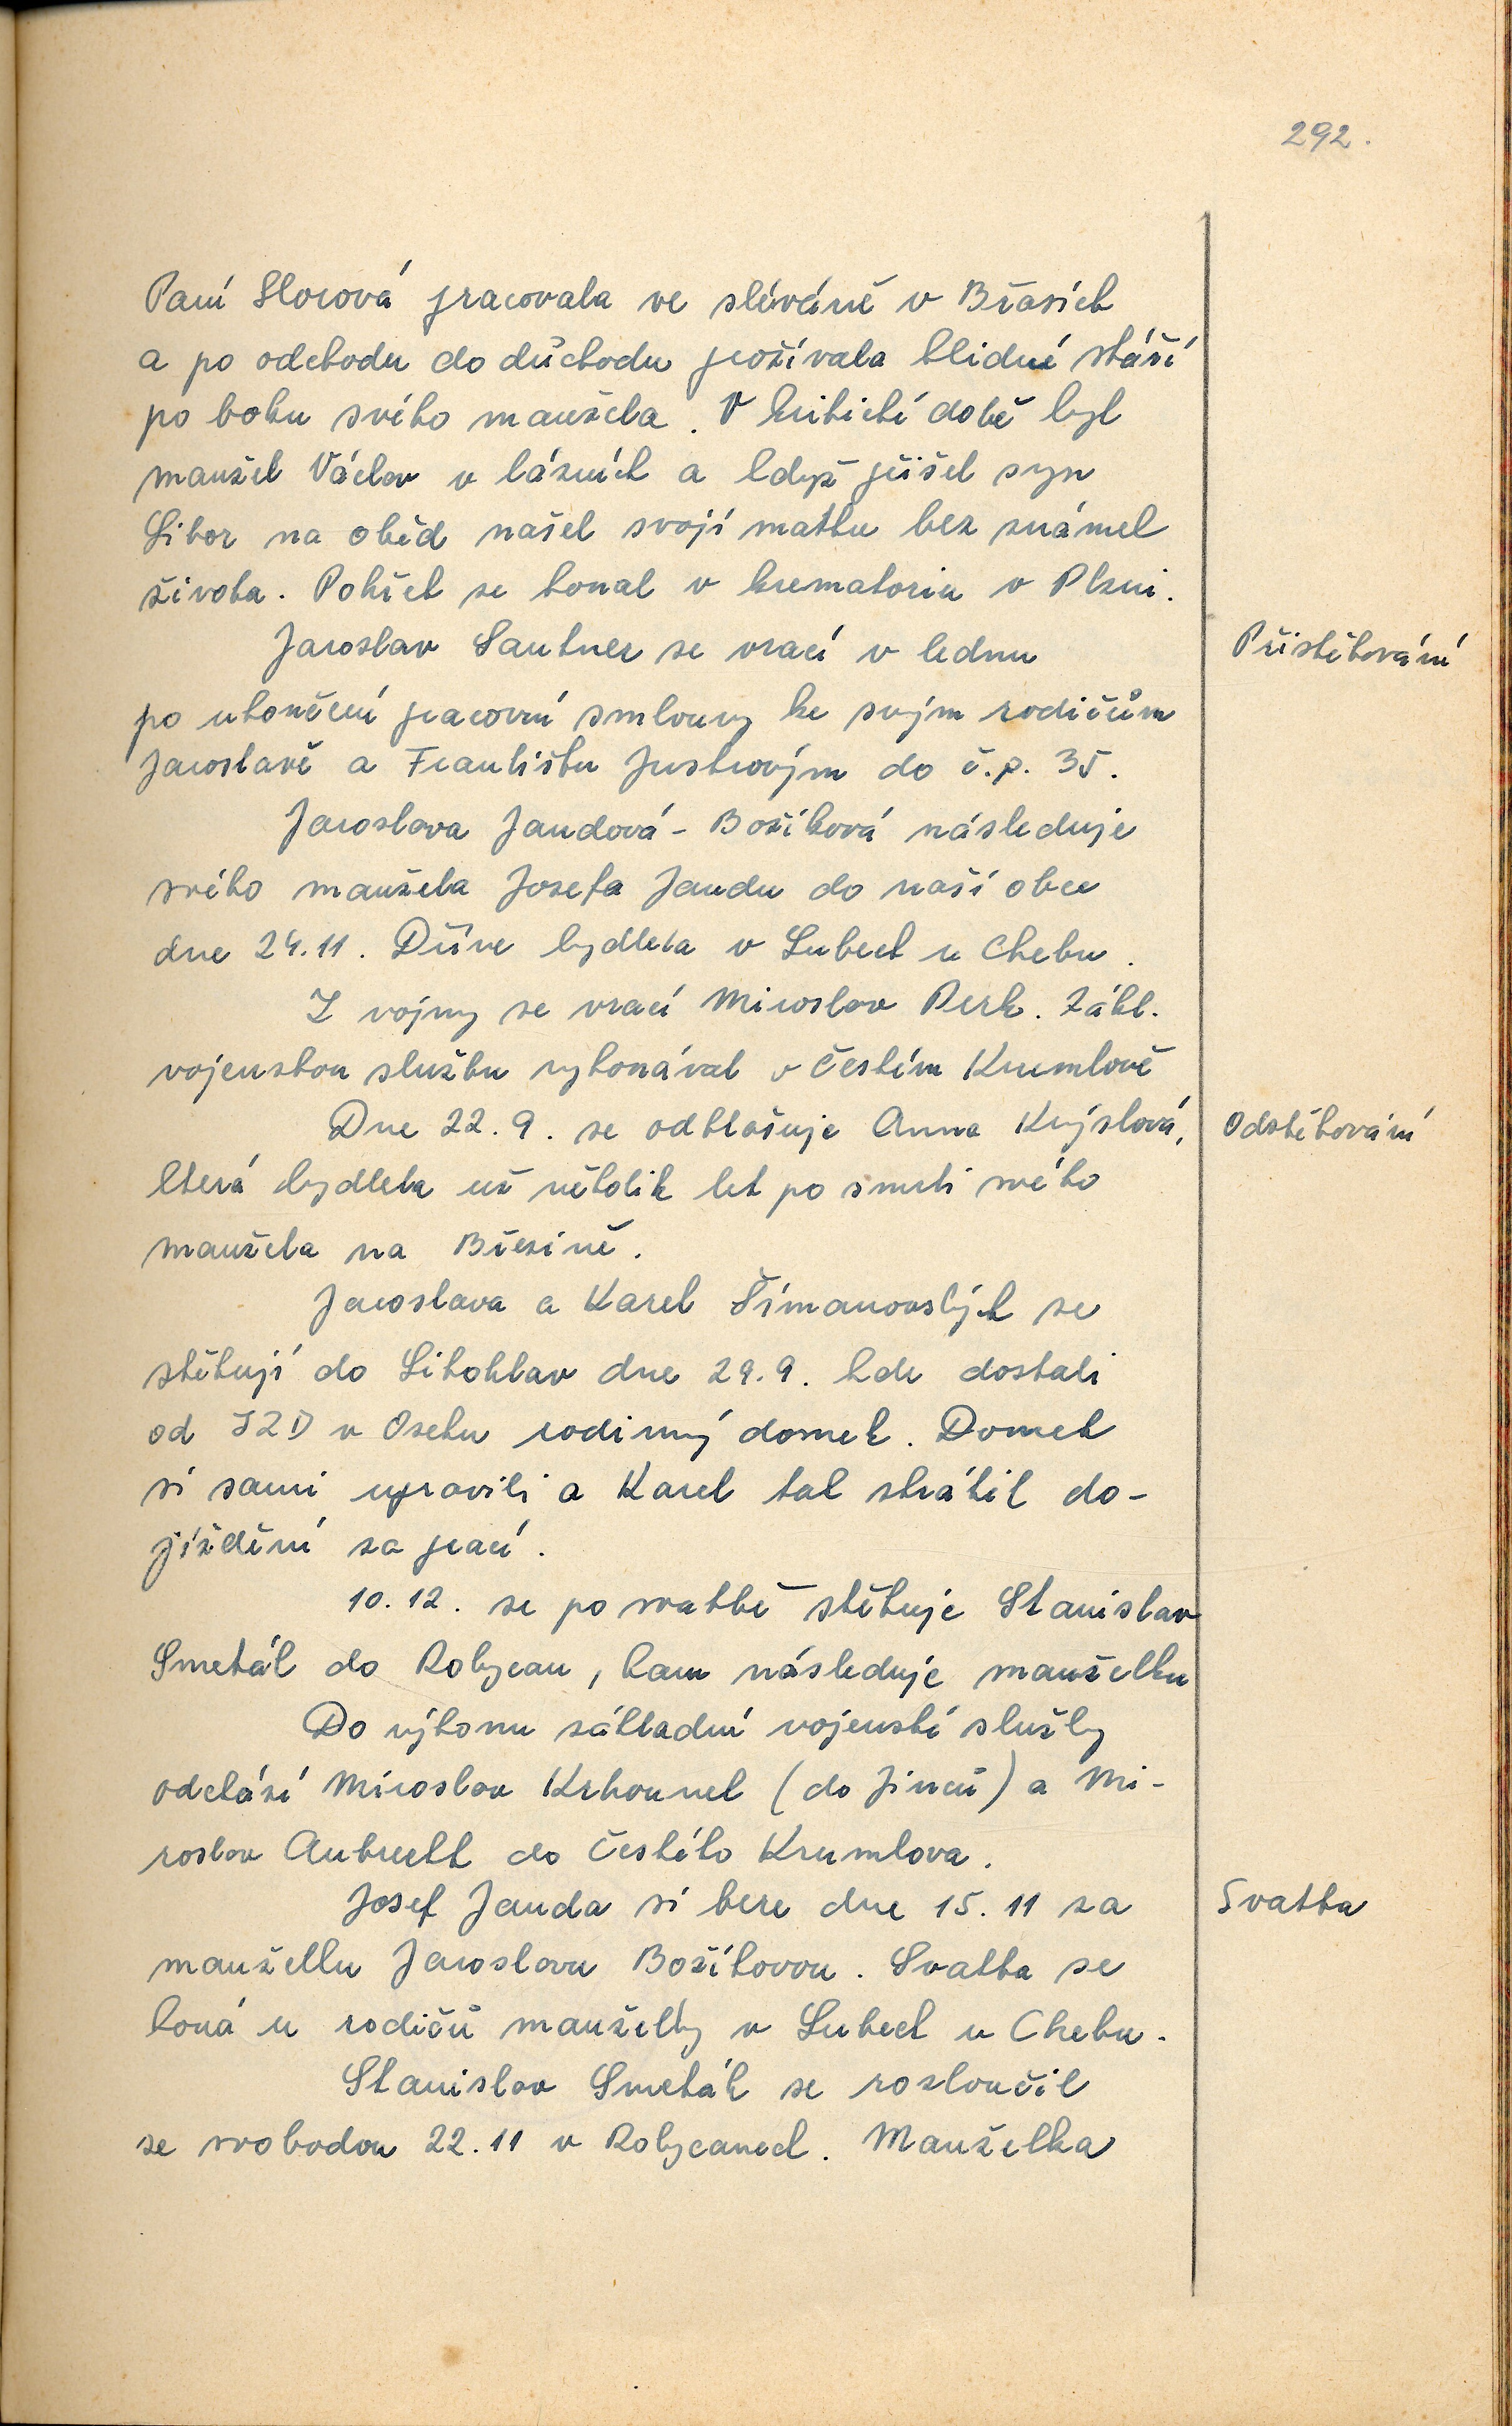 292.
Paní Slocová pracovala ve slévárně v Břasích
a po odchodu do důchodu prožívala klidné stáří
po boku svého manžela. V kritické době byl
manžel Václav v lázních a když přišel syn
Libor na oběd našel svojí matku bez známek
života. Pohřeb se konal v krematoriu v Plzni.
Jaroslav Sautner se vrací v lednu
Přistěhování
po ukončení pracovní smlouvy ke svým rodičům
Jaroslavě a Františku Justrovým do č.p. 35.
Jaroslava Jandová - Božíková následuje
svého manžela Josefa Jandu do naší obce
dne 24.11. Dříve bydlela v Lubech u Chebu.
Z vojny se vrací Miroslav Perk. Zákl.
vojenskou službu vykonával v Českém Krumlově
Dne 22.9. se odhlašuje Anna Krýslová,
Odstěhování
která bydlela už několik let po smrti svého
manžela na Březině.
Jaroslava a Karel Šímanovských se
stěhují do Litohlav dne 29.9. kde dostali
od JZD v Oseku rodinný domek. Domek
si sami upravili a Karel tak ztrátil do-
jíždění za prací.
10.12. se po svatbě stěhuje Stanislav
Smeták do Rokycan, kam následuje manželku
Do výkonu základní vojenské služby
odchází Miroslav Krhounek (do Jinců) a Mi-
roslav Aubrecht do Českého Krumlova.
Josef Janda si bere dne 15.11 za
Svatba
manželku Jaroslavu Božíkovou. Svatba se
koná u rodičů manželky v Lubech u Chebu.
Stanislav Smeták se rozloučil
se svobodou 22.11 v Rokycanech. Manželka